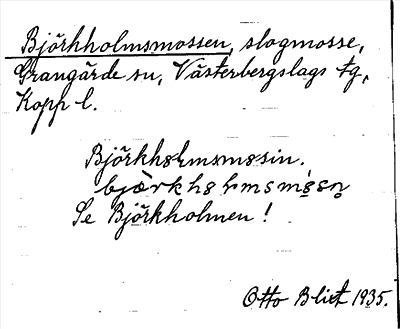 Björkholmsmossen, slogmosse,
Grangärde sn, Västerbergslags tg,
Kopp l.
Björkhɷlmsmɷssin.
Se Björkholmen!
Otto Blixt 1935.